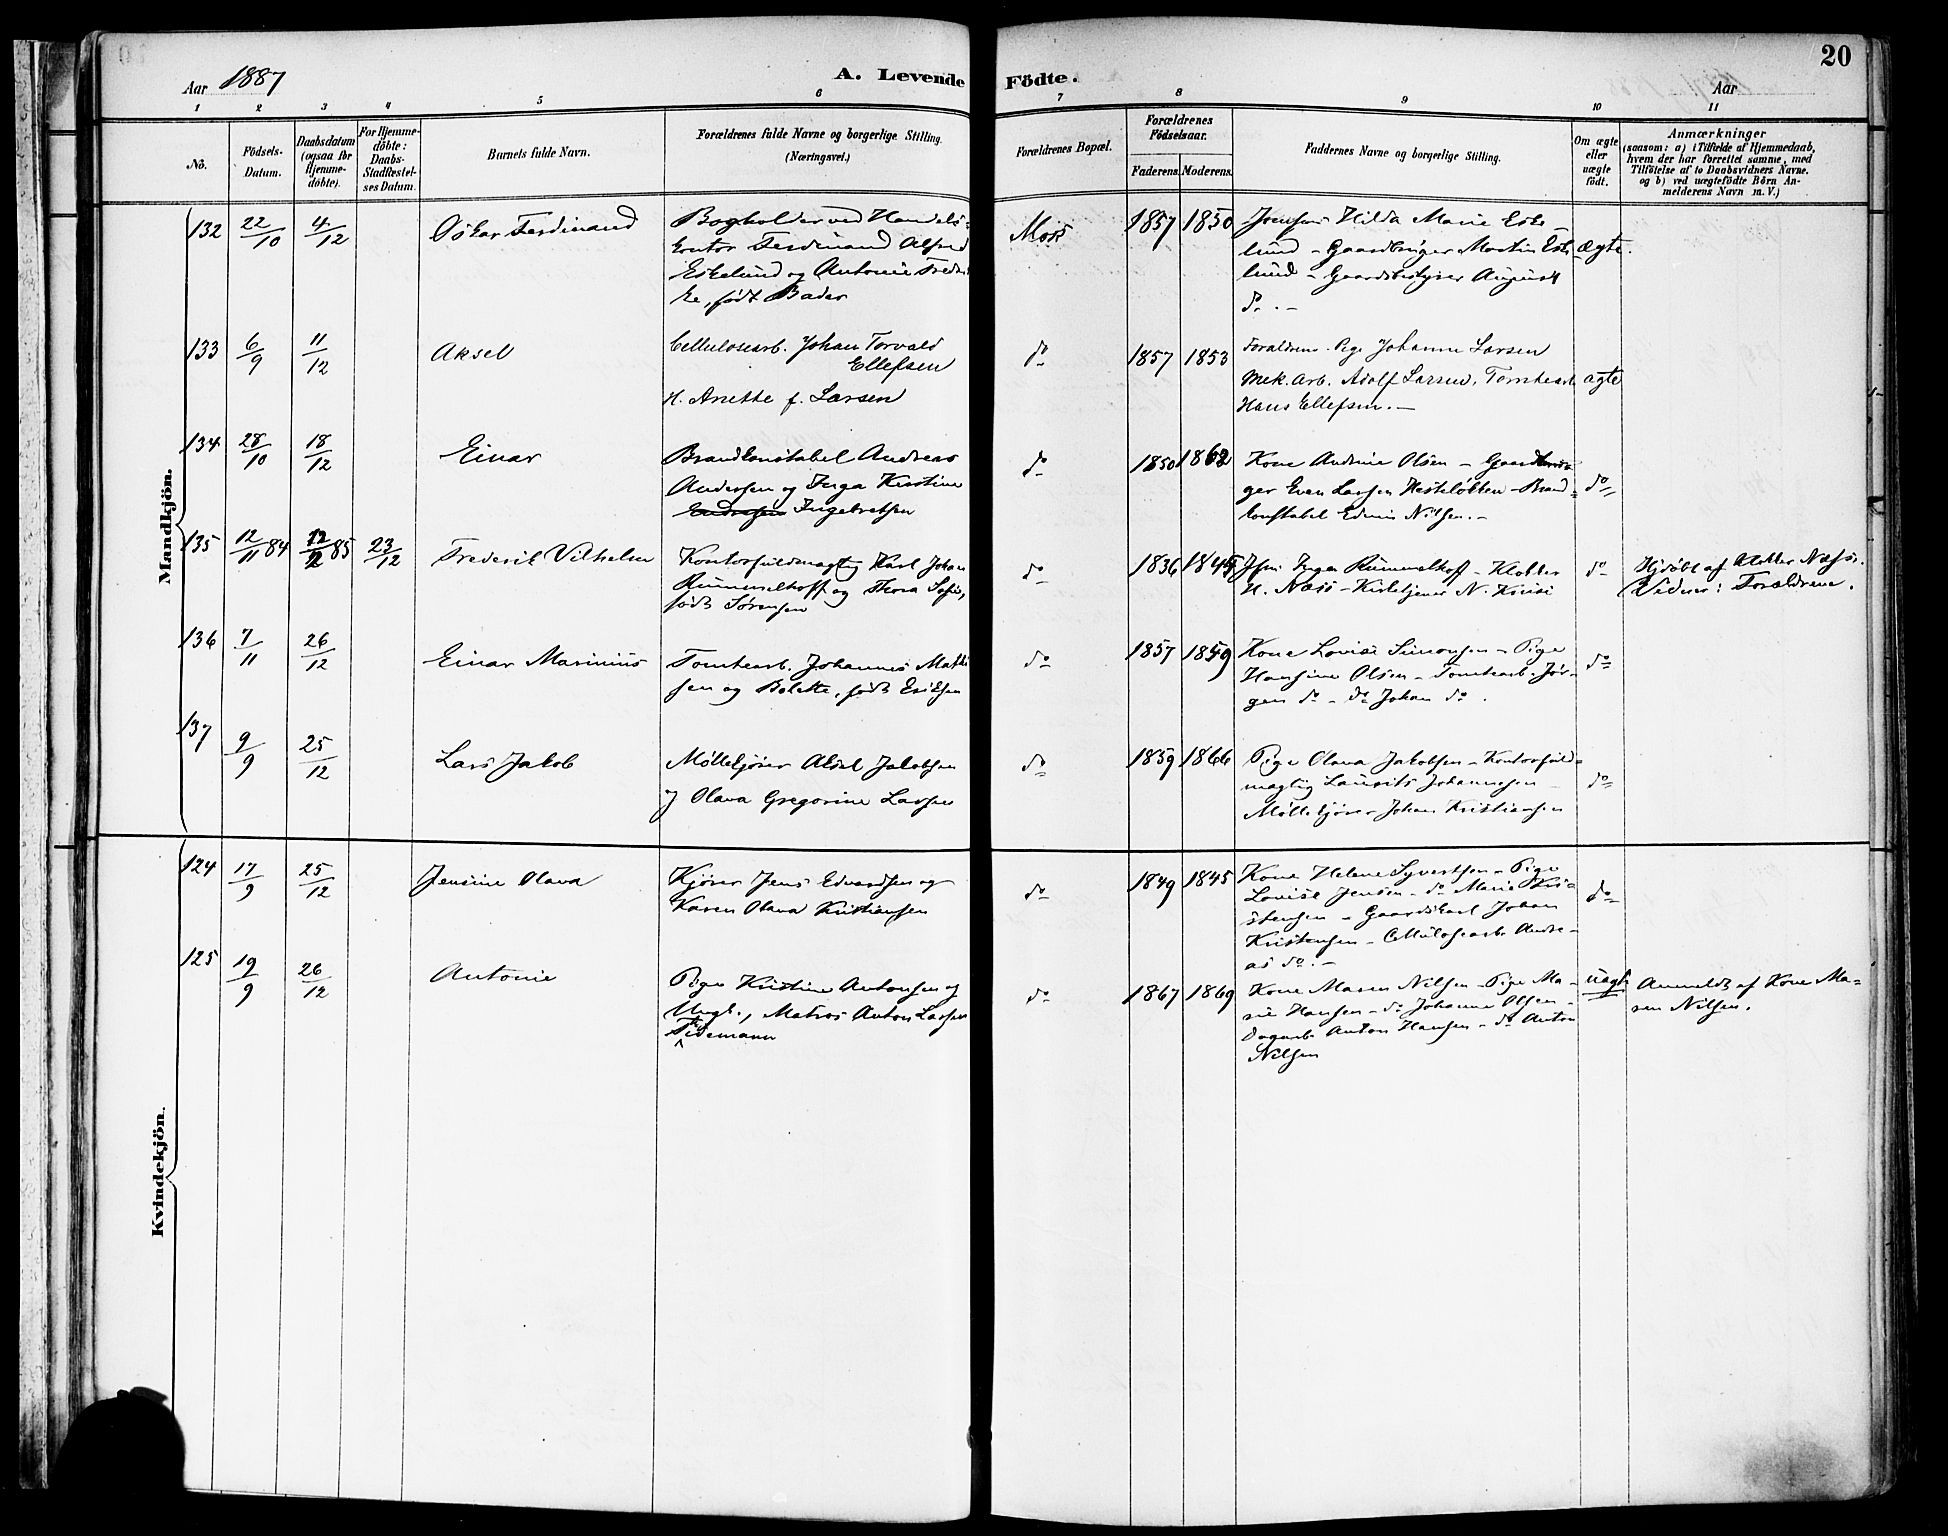 Aar 1887
A. Levende Födte.
Aar
20
1 2 3 4 5 6 7 8 9 10 11
No.
Födsels-
Datum.
Daabsdatum
(ogsaa for
Hjemme-
döbte).
For Hjemme-
döbte:
Daabs-
Stadfæstel-
ses Datum.
Barnets fulde Navn.
Forældrenes fulde Navne og borgerlige Stilling.
(Næringsvei.)
Forældrenes Bopæl.
Forældrenes
Födselsaar.
Faderens. Moderens.
Faddernes Navne og borgerlige Stilling.
Om ægte
eller
uægte
födt.
Anmærkninger
(saasom: a) i Tilfælde af Hjemmedaab,
hvem der har forrettet samme, med
Tilföielse af to Daabsvidners Navne.
og b) ved uægtefödte Börn An-
melderens Navn m. V.)
Mandkjön.
132 22/10 4/12 Oskar Ferdinand
Bogholder ved Handels-
kontor Ferdinand Alfred
Eskelund og Antonie Fredri
ke, født Bader
Moss 1857 1850
Jomfru Hilda Marie Eske-
lund - Gaardbruger Martin Eske
lund - Gaardsbestyrer August
do. -
ægte.
133 6/9 11/12 Aksel
Cellulosearb. Johan Torvald
Ellefsen
H. Anette f. Larsen
do 1857 1853
Forældrene. Pige Johanne Larsen
Mek. Arb. Adolf Larsen, Tomtearb.
Hans Ellefsen. -
ægte
134 28/10 18/12 Einar
Brandkonstabel Andreas
Andersen og Inga Kirstine
Ingebretsen
do 1850 1862
Kone Andrine Olsen - Gaardbru-
ger Even Larsen Hesteløkken - Brand-
konstabel Edvin Nilsen. -
do
135 12/11 84 12/2 85 23/12 Frederik Vilhelm
Kontorfuldmægtig Karl Johan
Rummelhoff og Thora Sofie,
født Sørensen
do 1836 1845
Jfru Inga Rummelhoff - Klokker
H. Næss - Kirketjener N. Kruse
do
Hjdøbt af Klokker Næss.
Vidner: Forældrene.
136 7/11 26/12 Einar Marinius
Tomtearb. Johannes Mathi
sen og Bolette, født Eriksen
do 1857 1859
Kone Lovise Simonsen - Pige
Hansine Olsen - Tomtearb. Jør-
gen do - do Johan do.
do
137 9/9 25/12 Lars Jakob
Møllekjører Aksel Jakobsen
og Olava Gregorine Larsen
do 1859 1866
Pige Olava Jakobsen - Kontorfuld-
mægtig Laurits Johannesen -
Møllekjører Johan Kristiansen
do
Kvindekjön.
124 17/9 25/12 Jensine Olava
Kjører Jens Edvardsen og
Karen Olava Kristiansen
do 1849 1845
Kone Helene Syvertsen - Pige
Lovise Jensen - do Marie Kri-
stensen - Gaardskarl Johan
Kristensen - Cellulosearb. Andre-
as do. -
do
125 19/9 26/12 Antonie
Pige Kristine Antonsen og
Ungk., Matros Anton Larsen
Tidemann
do 1867 1869
Kone Maren Nilsen - Pige Ma-
rie Hansen - do Johanne Olsen -
Dagarb. Anton Hansen - do Anton
Nilsen
uægte
Anmeldt af Kone Ma-
ren Nilsen.